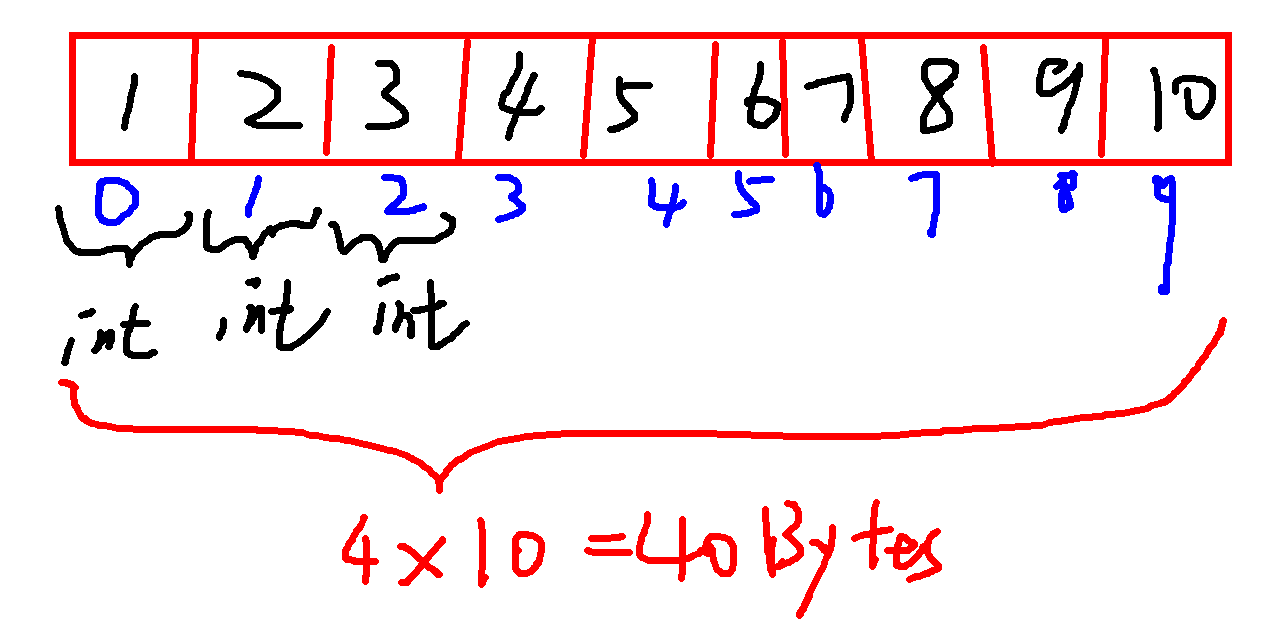 1 2 3 4 5 6 7 8 9 10
0 1 2 3 4 5 6 7 8 9
int int int
4 × 10 = 40 Bytes